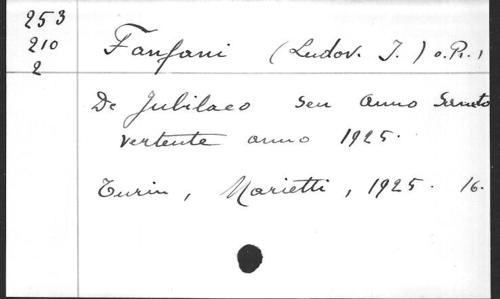 253
210
2
Fanfani (Ludov. J.) o.P.,
De Jubilaeo seu anno Sancto
vertente anno 1925.
Turin, Marietti, 1925. 16.